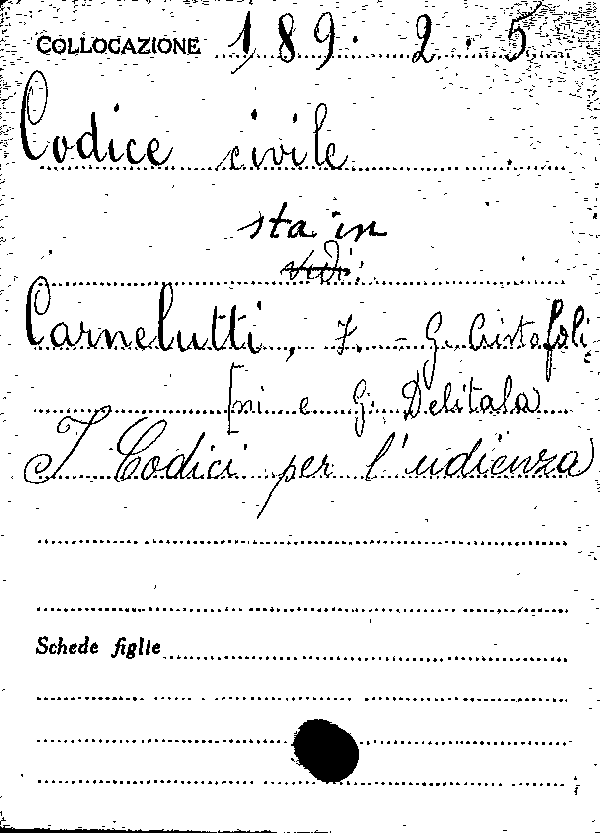 COLLOCAZIONE 189. 2. 5
Codice civile
sta in
vedi:
Carnelutti, F. - G. Cristofoli
[ni e G. Delitala
I Codici per l'udienza
Schede figlie